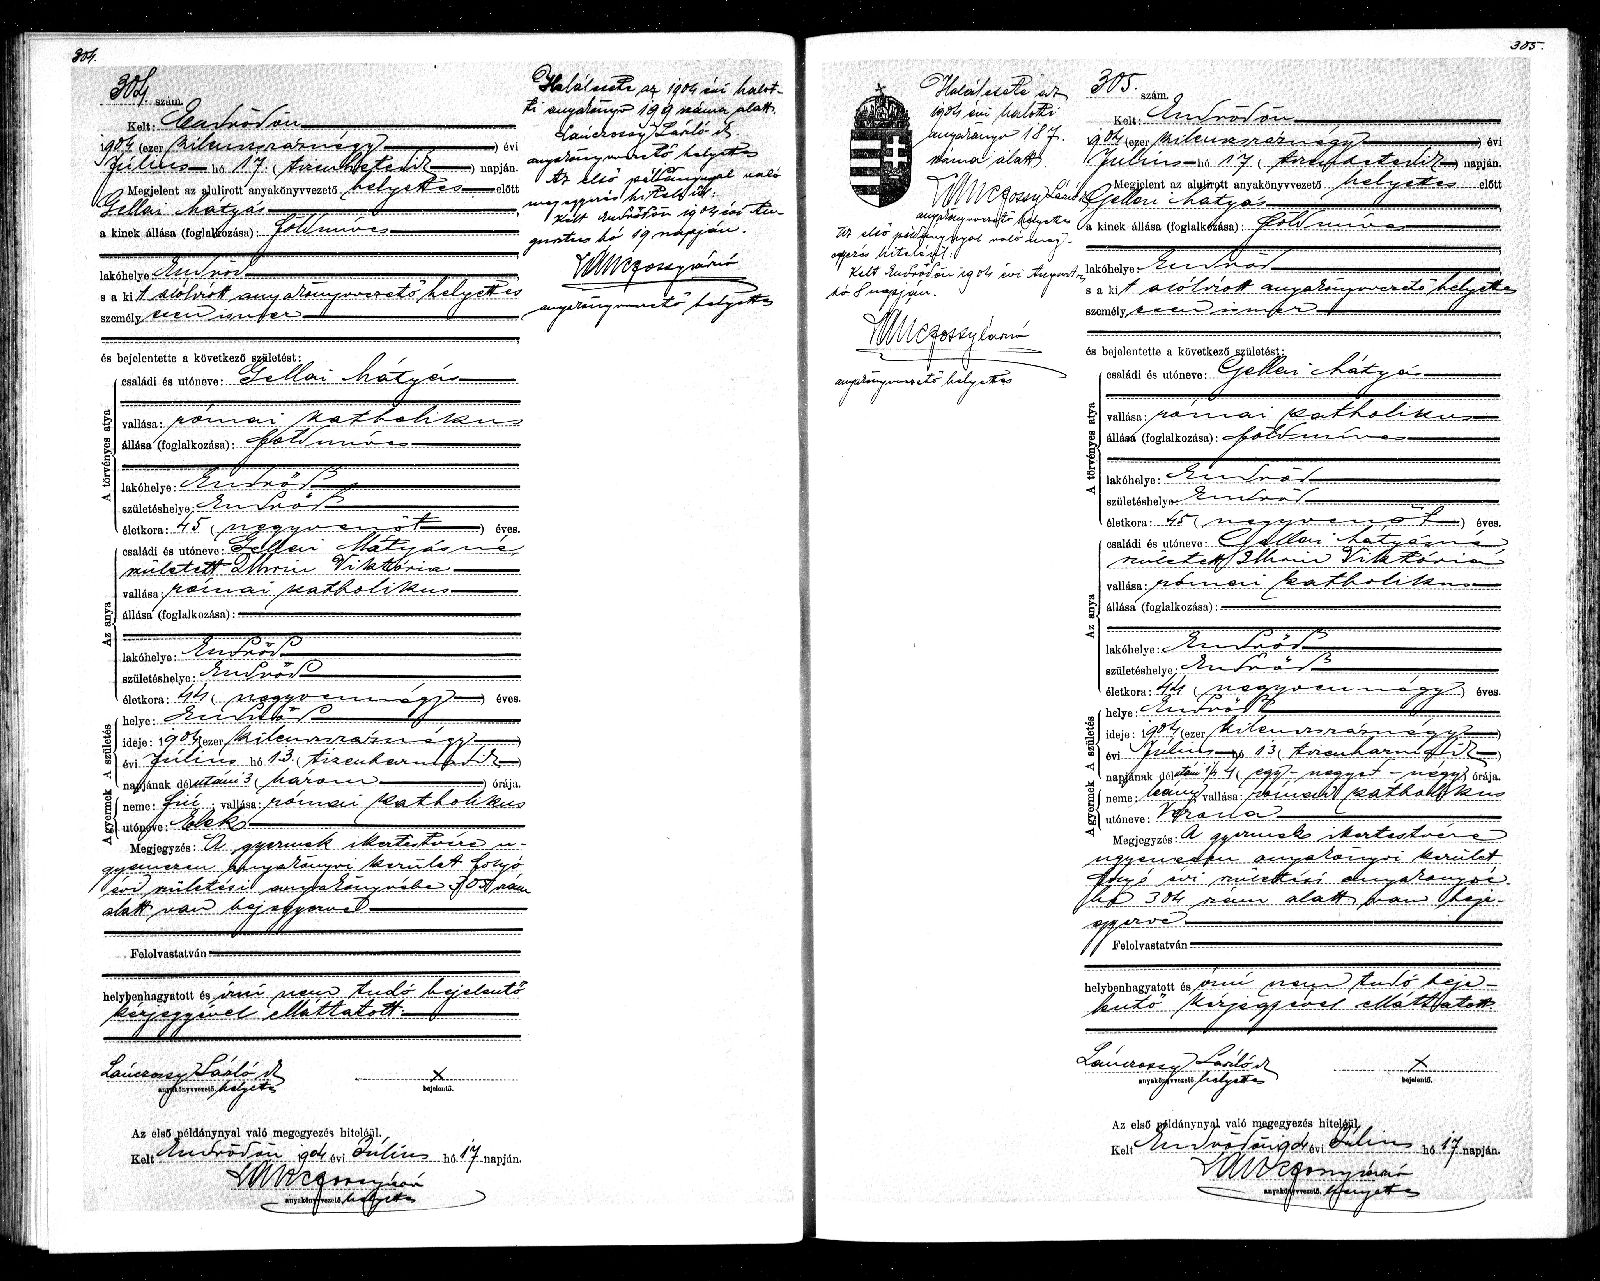 304.
304. szám.
Kelt: Endrődön
1904 (ezer kilenczszáznégy) évi
Július hó 17. (tizenhetedik) napján.
Megjelent az alulirott anyakönyvvezető helyettes előtt
Gellai Mátyás
a kinek állása (foglalkozása): földműves
lakóhelye: Endrőd
s a kit alólírott anyakönyvvezető helyettes
személyesen ismer
és bejelentette a következő születést:
A törvényes atya
családi és utóneve: Gellai Mátyás
vallása: római katholikus
állása (foglalkozása): földműves
lakóhelye: Endrőd
születéshelye: Endrőd
életkora: 45 (negyvenöt) éves.
Az anya
családi és utóneve: Gellai Mátyásné
született Uhrin Viktória
vallása: római katholikus
állása (foglalkozása):
lakóhelye: Endrőd
születéshelye: Endrőd
életkora: 44 (negyvennégy) éves.
A születés
helye: Endrőd
ideje: 1904 (ezer kilenczszáznégy)
évi Július hó 13. (tizenharmadik)
napjának délutáni 3 (három) órája.
A gyermek
neme: fiú; vallása: római katholikus
utóneve: Elek
Megjegyzés: A gyermek ikertestvére u-
gyanezen anyakönyvi kerület folyó
évi születési anyakönyvébe 305 szám
alatt van bejegyezve
Felolvastatván
helybenhagyatott és írni nem tudó bejelentő
kézjegyével elláttatott.
Lánczossy László
anyakönyvvezető helyettes
x
bejelentő.
Az első példánynyal való megegyezés hiteléül.
Kelt Endrődön 1904 évi Július hó 17 napján.
anyakönyvvezető helyettes
Halálesete az 1904 évi halot-
ti anyakönyv 199 száma alatt.
Lánczossy László
anyakönyvvezető helyettes
Az első példánynyal való
megegyezés hiteléül.
Kelt Endrődön 1904 évi Au-
gusztus hó 19 napján.
anyakönyvvezető helyettes
305.
Halálesete az
1904 évi halotti
anyakönyv 187.
száma alatt.
Lánczossy László
anyakönyvvezető helyettes
Az első példánynyal való meg-
egyezés hiteléül.
Kelt Endrődön 1904 évi Auguszt.
hó 8 napján.
anyakönyvvezető helyettes
305. szám.
Kelt: Endrődön
1904 (ezer kilenczszáznégy) évi
Július hó 17 (tizenhetedik) napján.
Megjelent az alulirott anyakönyvvezető helyettes előtt
Gellai Mátyás
a kinek állása (foglalkozása): földműves
lakóhelye: Endrőd
s a kit alólírott anyakönyvvezető helyettes
személyesen ismer
és bejelentette a következő születést:
A törvényes atya
családi és utóneve: Gellai Mátyás
vallása: római katholikus
állása (foglalkozása): földműves
lakóhelye: Endrőd
születéshelye: Endrőd
életkora: 45 (negyvenöt) éves.
Az anya
családi és utóneve: Gellai Mátyásné
született Uhrin Viktória
vallása: római katholikus
állása (foglalkozása):
lakóhelye: Endrőd
születéshelye: Endrőd
életkora: 44 (negyvennégy) éves.
A születés
helye: Endrőd
ideje: 1904 (ezer kilenczszáznégy)
évi Július hó 13 (tizenharmadik)
napjának délutáni 1/4 4 (egy-negyed-négy) órája.
A gyermek
neme: leány; vallása: római katholikus
utóneve: Verona
Megjegyzés: A gyermek ikertestvére
ugyanezen anyakönyvi kerület
folyó évi születési anyakönyvé-
be 304 szám alatt van beje-
gyezve
Felolvastatván
helybenhagyatott és írni nem tudó beje-
lentő kézjegyével elláttatott.
Lánczossy László
anyakönyvvezető helyettes
x
bejelentő.
Az első példánynyal való megegyezés hiteléül.
Kelt Endrődön 1904 évi Július hó 17 napján.
anyakönyvvezető helyettes